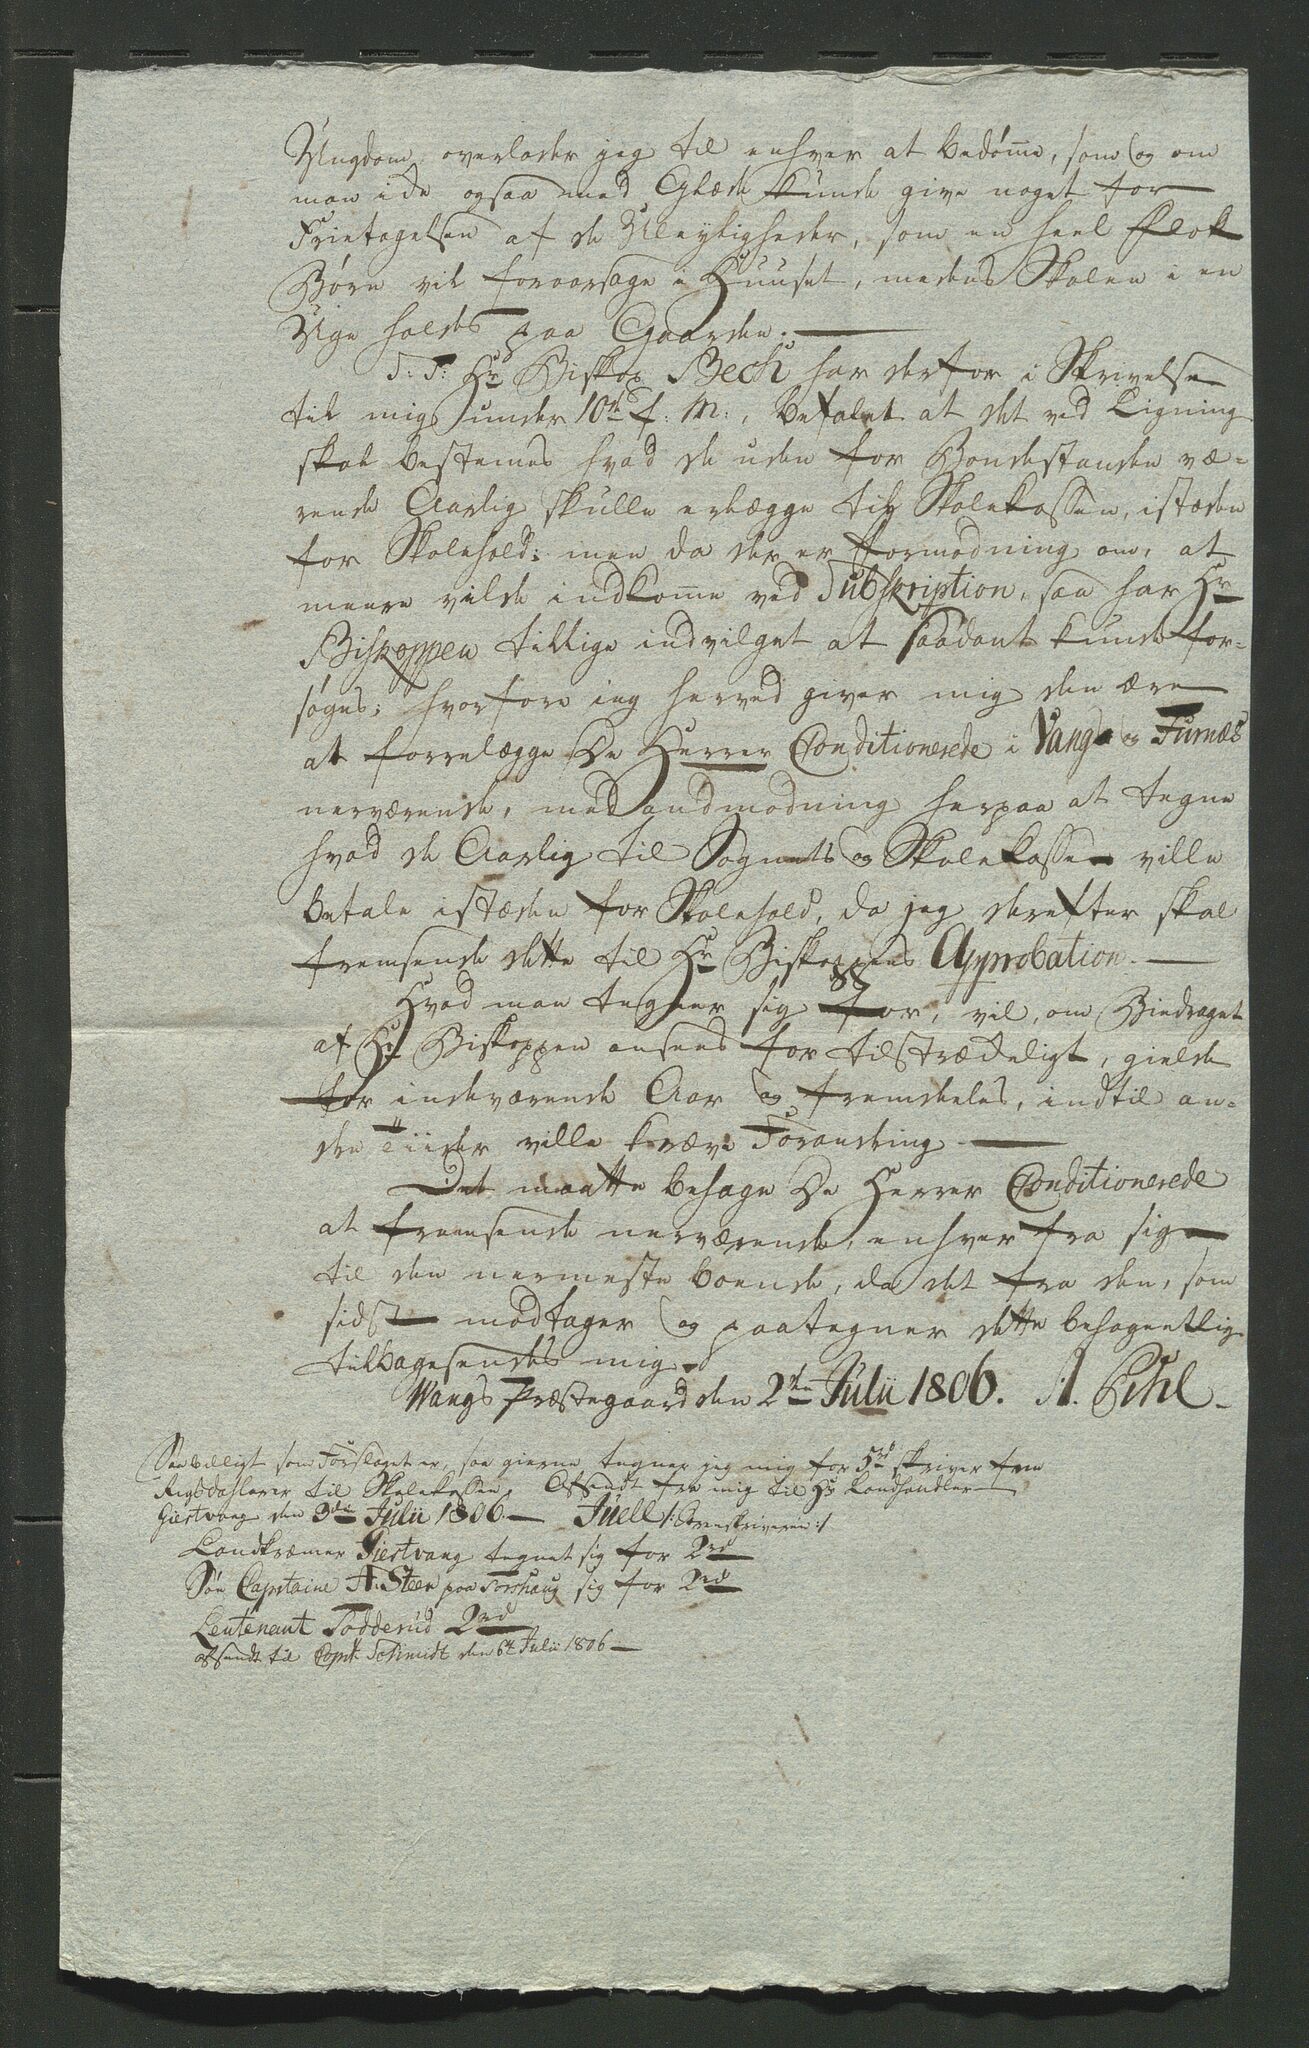 Ungdom, overlader jeg til enhver at bedøm̅e, som og om
man ikke ogsaa med Glæde kunde give noget for
Fritagelsen af de Uleyligheder, som en heel Flok
Børn vil foraarsage i Huuset, medens Skolen i en
Uge holdes paa Gaarden.
T: T: Hr Biskop Bech har derfor i Skrivelse
til mig under 10de f: M:, befalet at det ved Ligning
skal bestemes hvad de uden for Bondestanden væ-
rende Aarlig skulle erlægge til Skolekassen, istæden
for Skolehold; men da der er Formodning om, at
meere vilde indkom̅e ved Subskription, saa har Hr
Biskoppen tillige indvilget at saadant kunde for-
søges; hvorfore jeg herved giver mig den ære
at forrelægge De Herrer Conditionerede i Vang og Furnæs
nerværende, med andmodning herpaa at tegne
hvad de Aarlig til Sognets Skolekasse ville
betale istæden for Skolehold, da jeg derefter skal
fremsende dette til Hr Biskoppens Approbation.
Hvad man tegner sig for, vil, om Biedraget
af Hr Biskoppen ansees for tilstrækeligt, gielde
for indeværende Aar og fremdeles, indtil an-
dre Tiider ville kræve Forandring
Det maatte behage De Herrer Conditionerede
at fremsende nerværende, enhver fra sig
til den nermeste boende, da det fra den, som
sidst modtager og paategner dette behageligt
tilbagesendes mig.
Wangs Præstegaard den 2den Julii 1806. A. Pihl
Saa billigt som Forslaget er, saa gierne tegner jeg mig for 5rd skriver fem
Rigsdahlerer til Skolekassen. Afsendt fra mig til Hr Landhandler
Giestvang den 3die Julii 1806. Juell /: Sorenskriveren :/
Landkræmer Giestvang tegnet sig for 2rd
Søe Capetaine A. Steen paa Torshaug sig for 2rd
Leutenant Todderud 2rd
afsendt til Capt: Schmidt den 6t Julii 1806